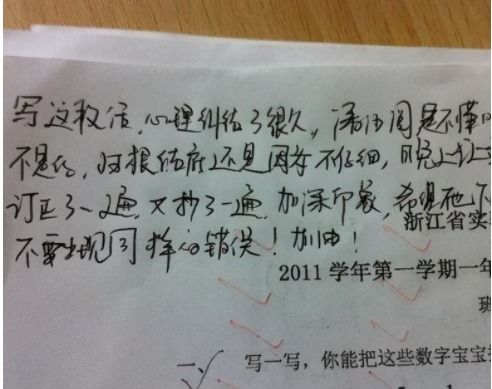 写这段话，心理纠结了很久，语法问是不懂
不是行，归根结底还是因为不仔细，昨晚上让
订正了一遍，又抄了一遍，加深印象，希望他下
不要出现同样的错误！加油！
浙江省实
2011学年第一学期一年
班
一、写一写，你能把这些数字宝宝